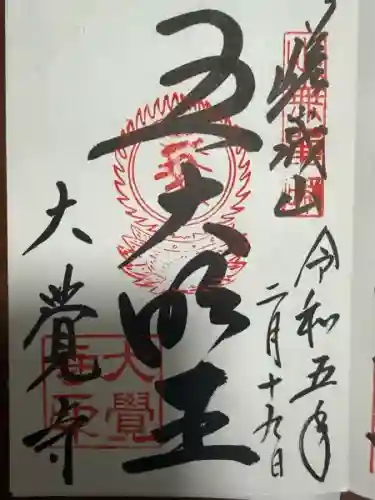 嵯峨山
令和五年
二月十九日
五大明王
大覺寺
大覺